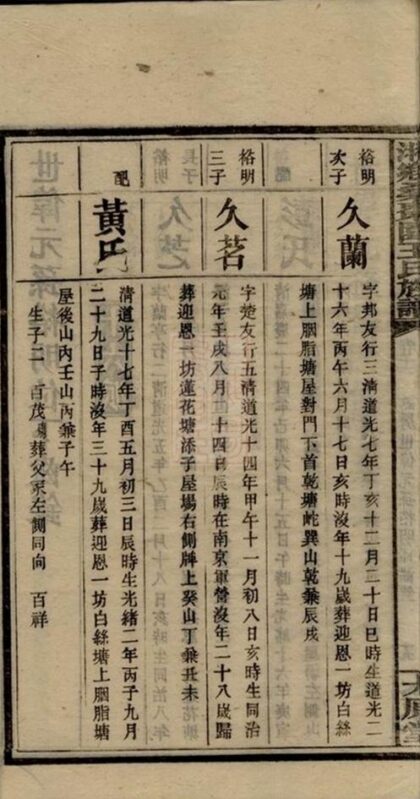 裕明
次子
久蘭
字邦友行三清道光七年丁亥十二月二十日巳時生道光二
十六年丙午六月十七日亥時沒年十九歲葬迎恩一坊白絲
塘上胭脂塘屋對門下首乾塘屹巽山乾兼辰戌
裕明
三子
久茗
字楚友行五清道光十四年甲午十一月初八日亥時生同治
元年壬戌八月十四日辰時在南京軍營沒年二十八歲歸
葬迎恩一坊蓮花塘添子屋場右側牌上癸山丁兼丑未
配
黃氏
清道光十七年丁酉五月初三日辰時生光緒二年丙子九月
二十九日子時沒年三十九歲葬迎恩一坊白絲塘上胭脂塘
屋後山內壬山丙兼子午
生子二 百茂 葬父冢左側同向 百祥